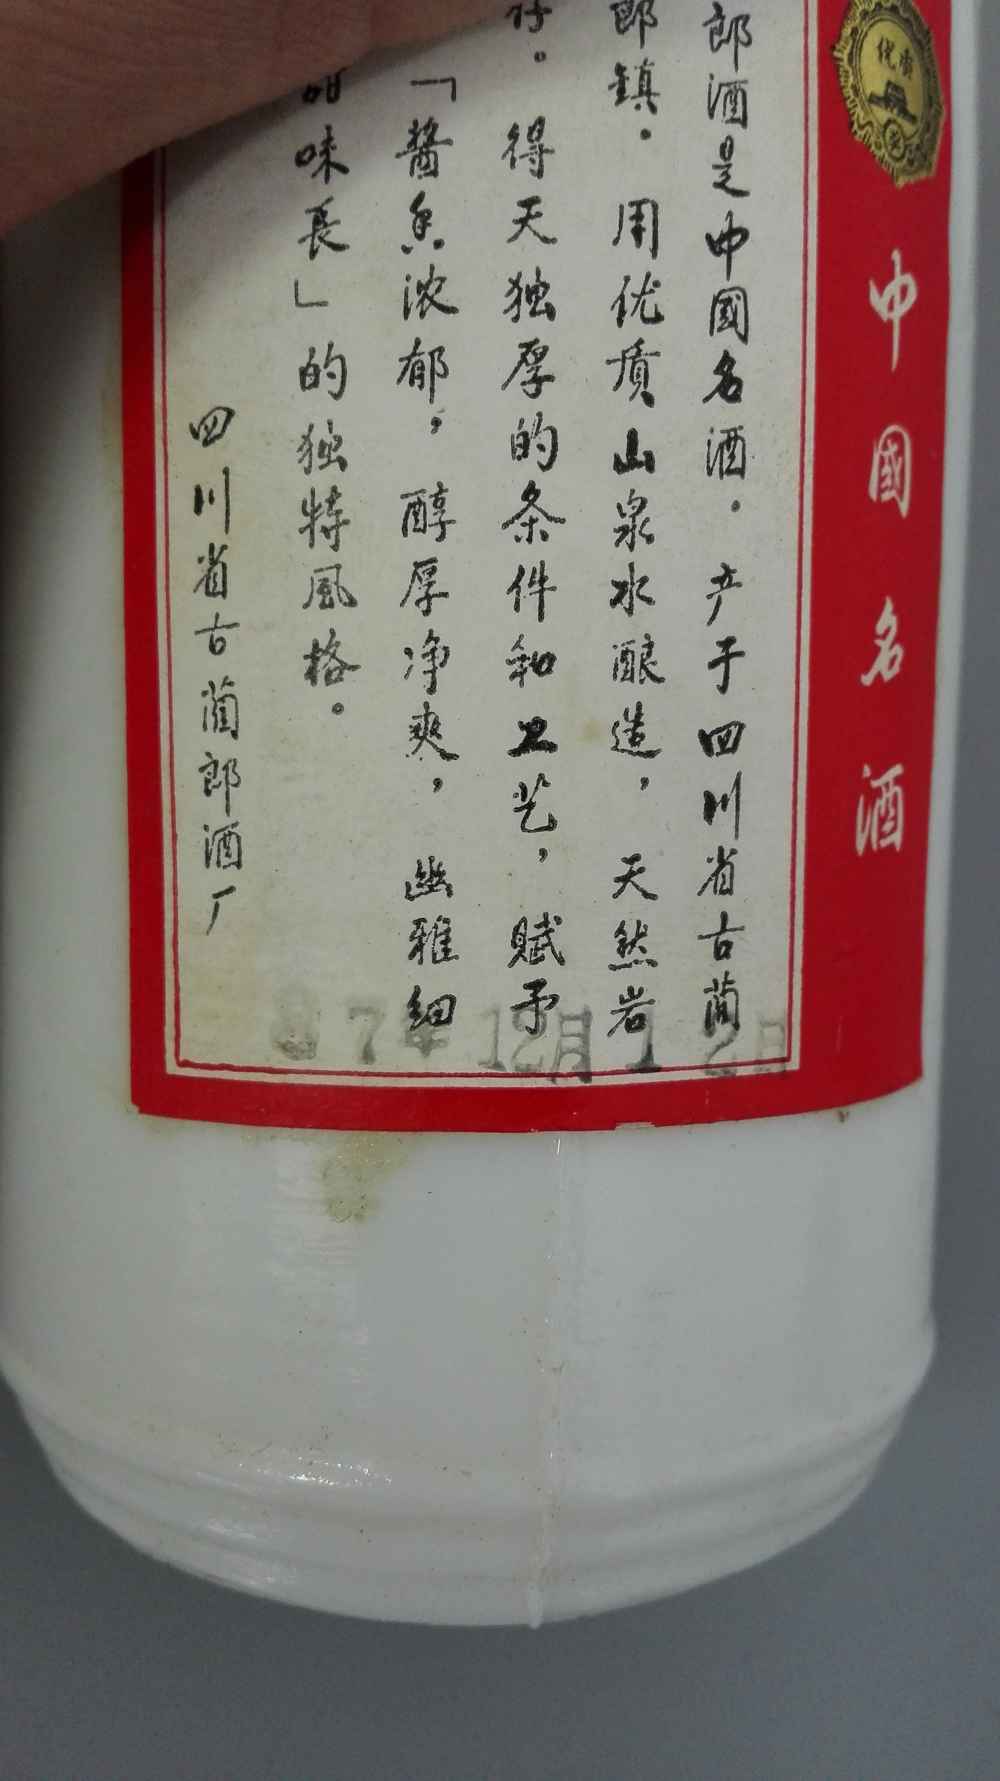 优质
中國名酒
郎酒是中國名酒。产于四川省古蔺
郎鎮。用优质山泉水酿造，天然岩
得天独厚的条件和工艺，赋予
「醬香浓郁，醇厚净爽，幽雅细
味長」的独特風格。
四川省古蔺郎酒厂
87年12月12日